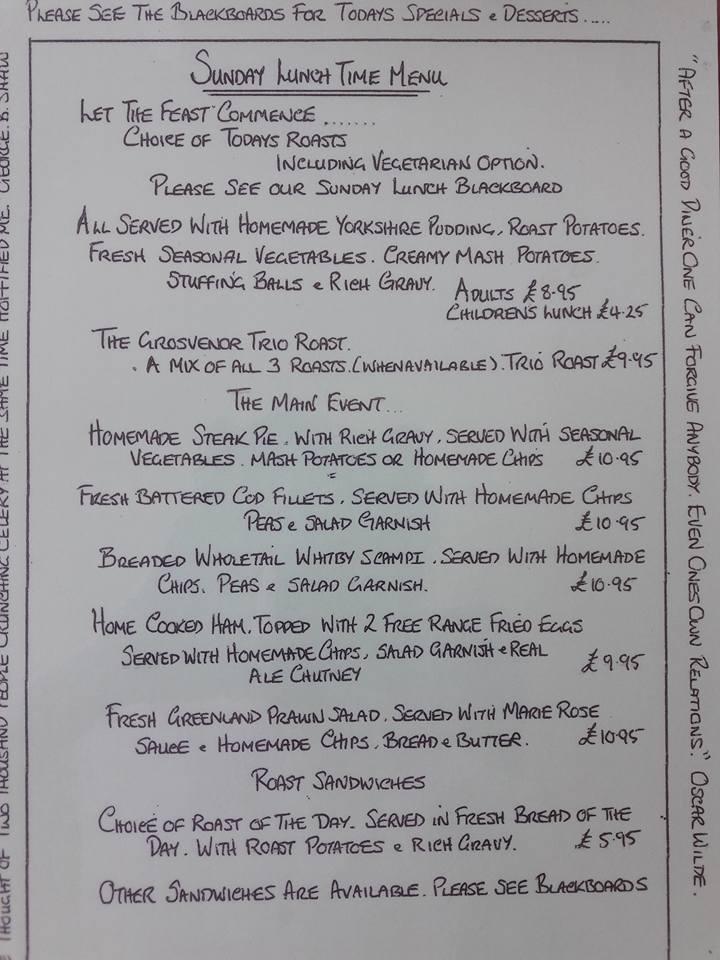 PLEASE SEE THE BLACKBOARDS FOR TODAYS SPECIALS e DESSERTS.....
SUNDAY LUNCH TIME MENU
LET THE FEAST COMMENCE .......
CHOICE OF TODAYS ROASTS
INCLUDING VEGETARIAN OPTION.
PLEASE SEE OUR SUNDAY LUNCH BLACKBOARD
ALL SERVED WITH HOMEMADE YORKSHIRE PUDDING, ROAST POTATOES.
FRESH SEASONAL VEGETABLES. CREAMY MASH POTATOES.
STUFFING BALLS e RICH GRAVY. ADULTS £8.95
CHILDRENS LUNCH £4.25
THE GROSVENOR TRIO ROAST.
. A MIX OF ALL 3 ROASTS. (WHEN AVAILABLE). TRIO ROAST £9.95
THE MAIN EVENT...
HOMEMADE STEAK PIE. WITH RICH GRAVY. SERVED WITH SEASONAL
VEGETABLES. MASH POTATOES OR HOMEMADE CHIPS £10.95
FRESH BATTERED COD FILLETS. SERVED WITH HOMEMADE CHIPS
PEAS e SALAD GARNISH £10.95
BREADED WHOLETAIL WHITBY SCAMPI. SERVED WITH HOMEMADE
CHIPS. PEAS e SALAD GARNISH. £10.95
HOME COOKED HAM. TOPPED WITH 2 FREE RANGE FRIED EGGS
SERVED WITH HOMEMADE CHIPS, SALAD GARNISH e REAL
ALE CHUTNEY £9.95
FRESH GREENLAND PRAWN SALAD. SERVED WITH MARIE ROSE
SAUCE e HOMEMADE CHIPS, BREAD e BUTTER. £10.95
ROAST SANDWICHES
CHOICE OF ROAST OF THE DAY. SERVED IN FRESH BREAD OF THE
DAY. WITH ROAST POTATOES e RICH GRAVY. £5.95
OTHER SANDWICHES ARE AVAILABLE. PLEASE SEE BLACKBOARDS
"AFTER A GOOD DINER ONE CAN FORGIVE ANYBODY. EVEN ONES OWN RELATIONS." OSCAR WILDE.
THOUGHT OF TWO THOUSAND PEOPLE CRUNCHING CELERY AT THE SAME TIME HORRIFIED ME. GEORGE. B. SHAW